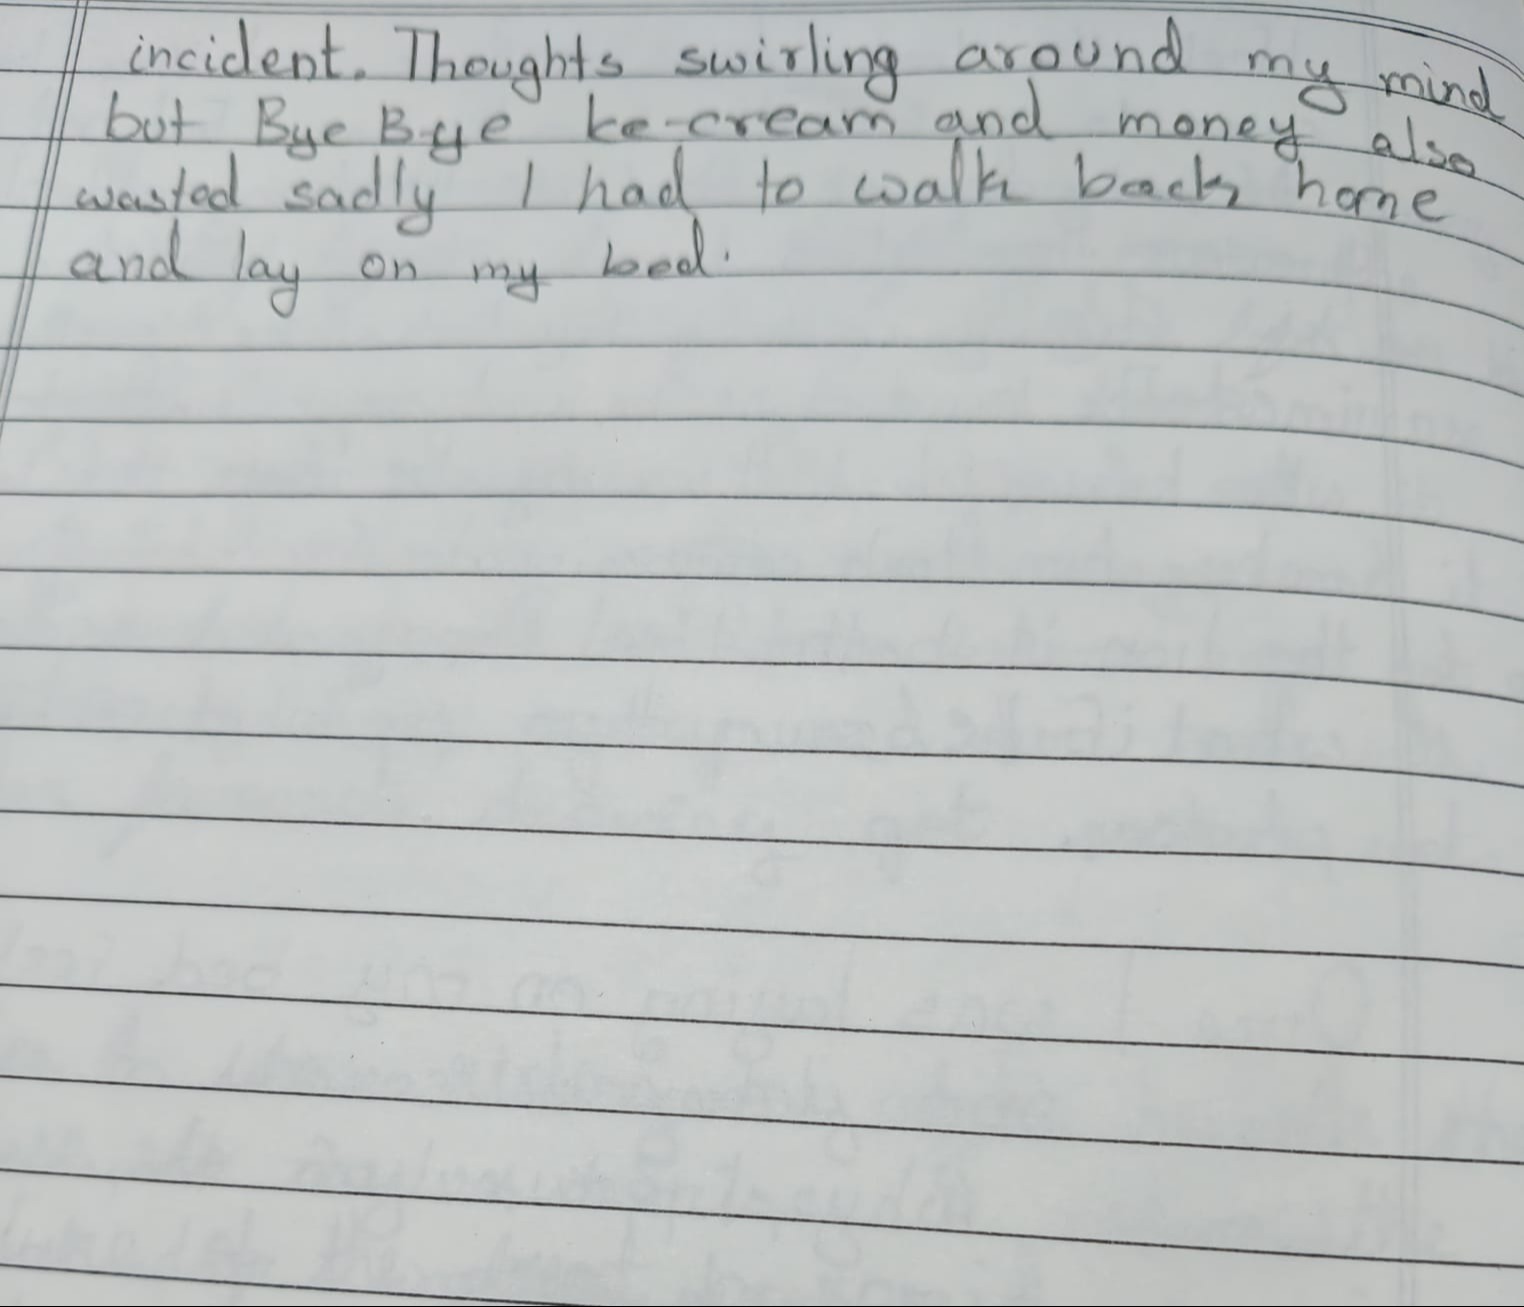 incident. Thoughts swirling around my mind
but Bye Bye Ice-cream and money also
wasted sadly I had to walk back home
and lay on my bed.